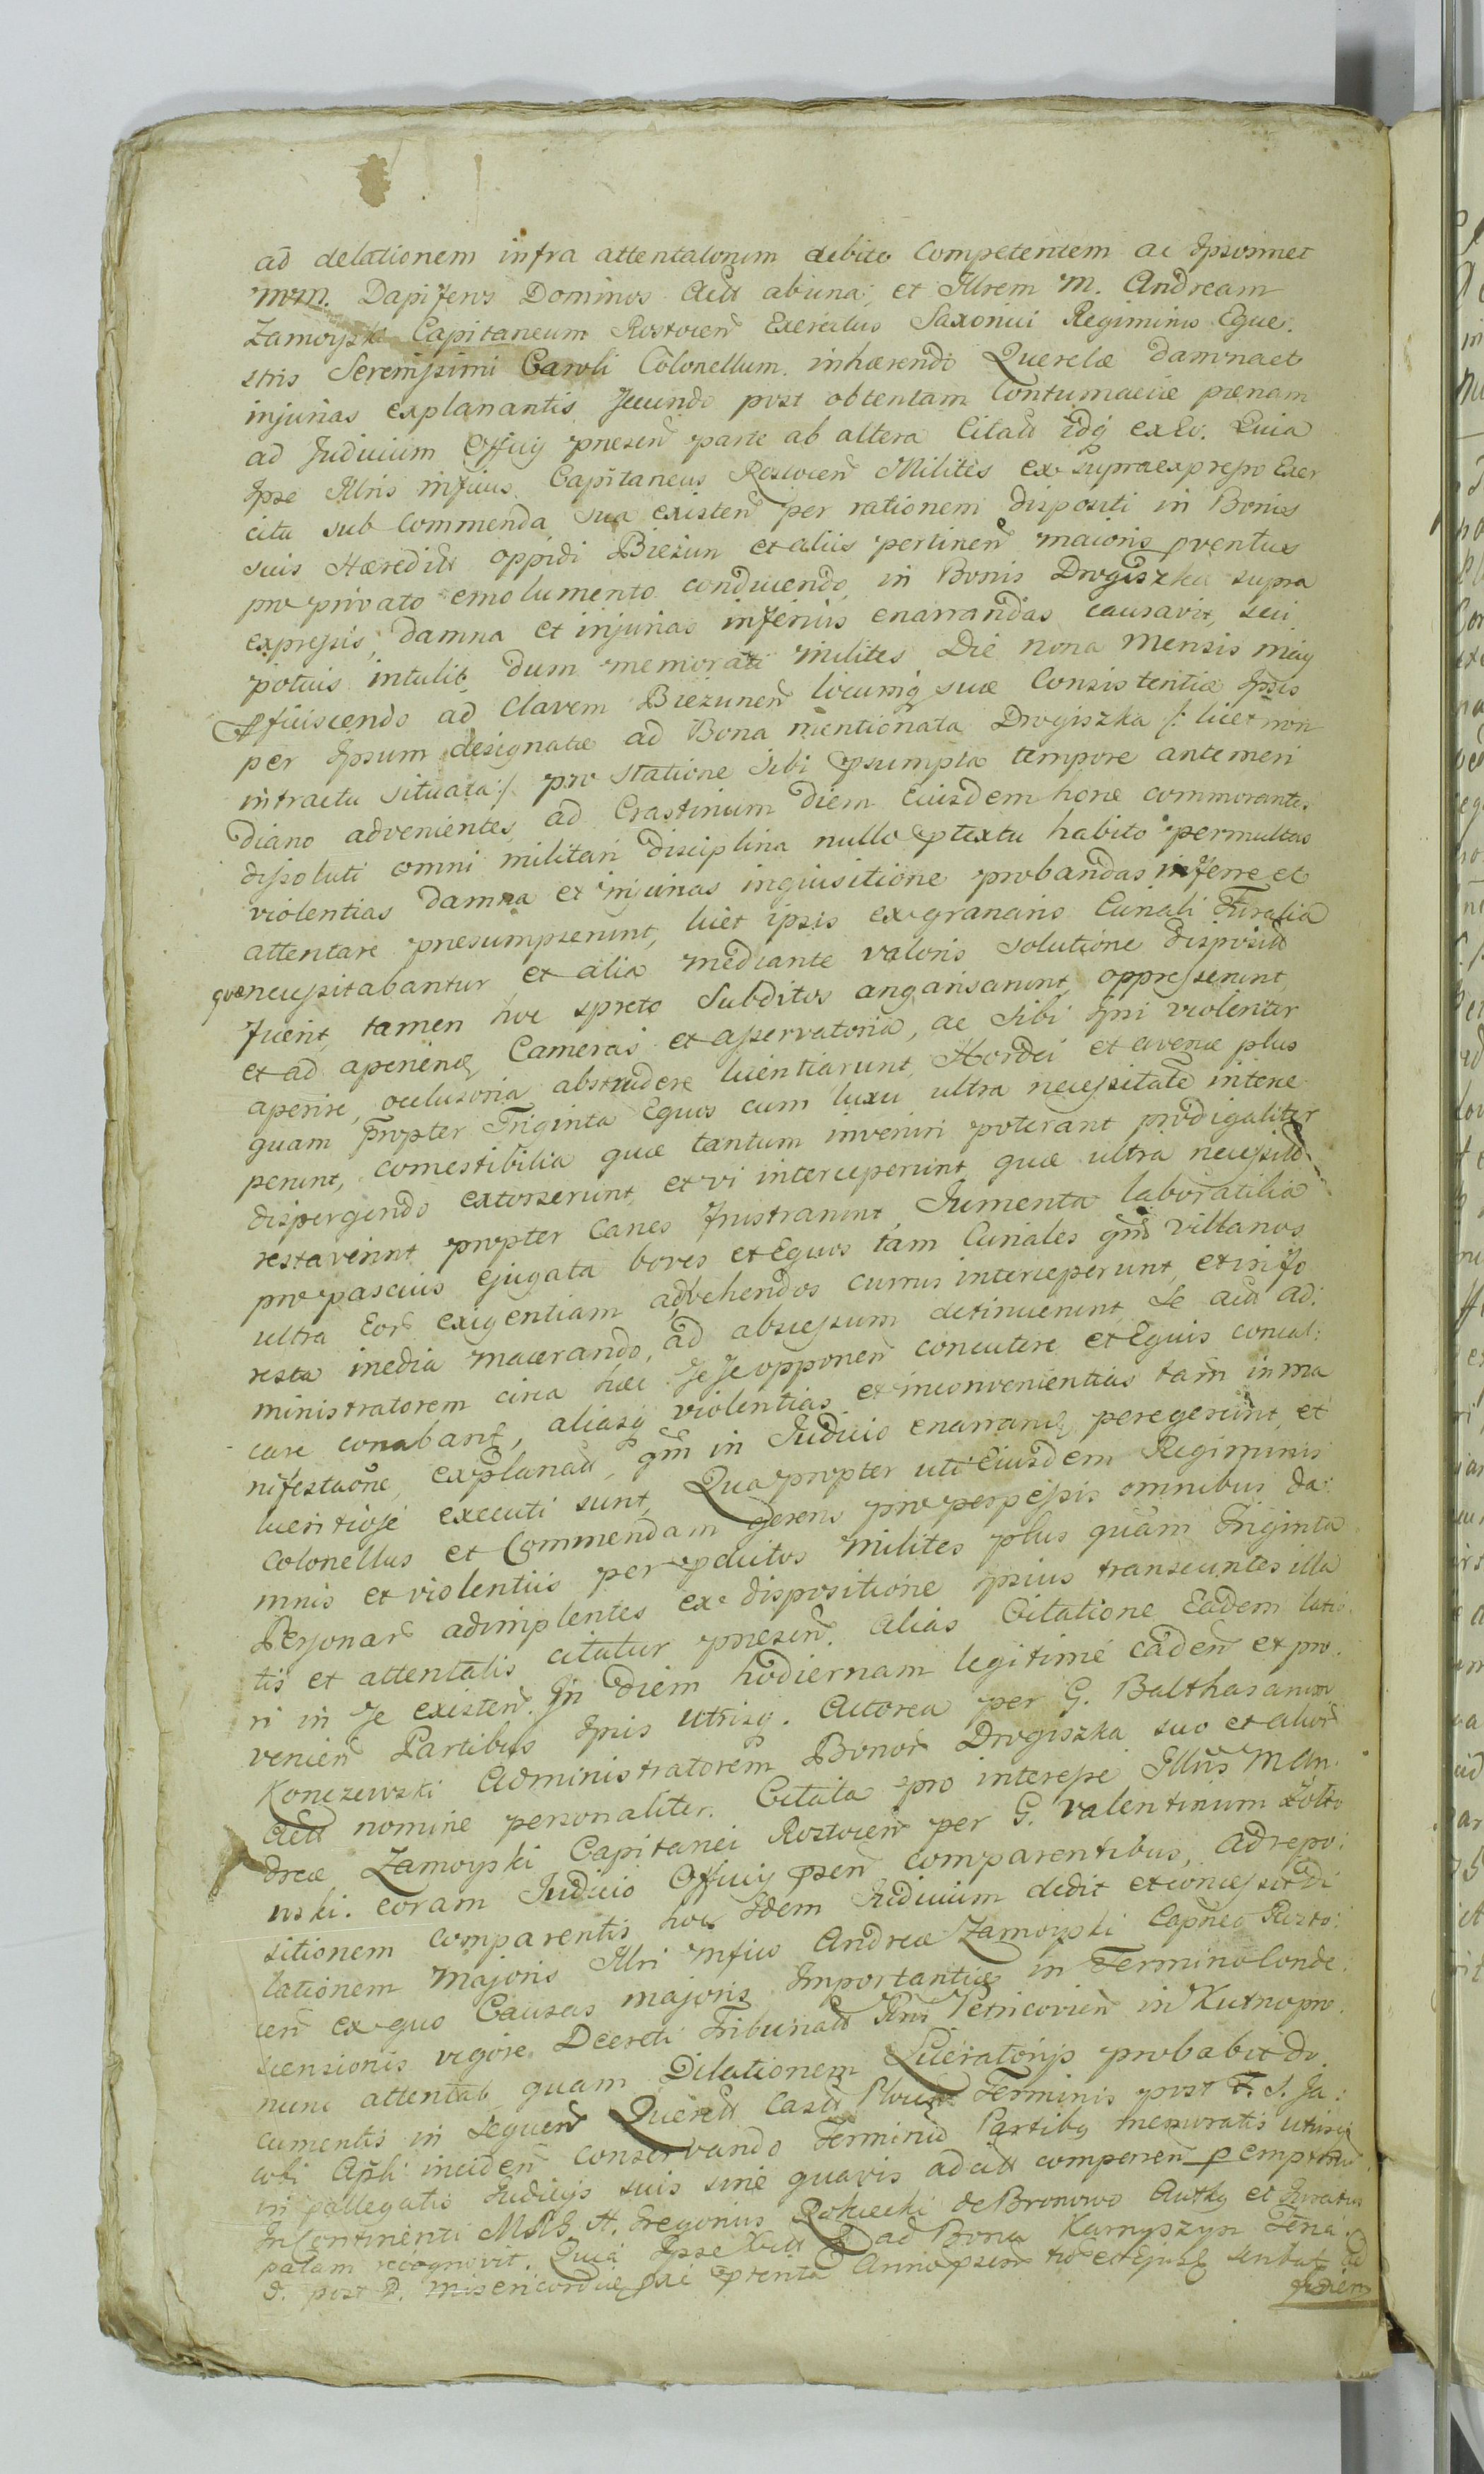 ad delationem infra attentatorum debite Competentem ac Ipsosmet
mm. Dapiferos Dominos Actt abuna, et Illrem M. Andream
Zamoysk Capitaneum Rostocień Exercitus Saxonici Regiminis Eque-
stris Serenissimi Caroli Colonellum. inhærendo Querelæ damna et
injurias explanantis secundo post obtentam Contumaciæ pœnam
ad Judicium Officij præseñ parte ab altera Citatt idq exEo. Quia
Ipse Illris mficus Capitaneus Rostocień Milites ex supraexpresso Exer
citu sub Commenda sua existeñ per rationem dispositi in Bonis
suis Hæreditt oppidi Bieżun et aliis pertineñ maioris pventus
pro privato emolumento conducendo, in Bonis Drogiszka supra
expressis, damna et injurias inferius enarrandas causavit, seu
potius intulit, dum memorati milites Die nona Mensis maij
pficiscendo ad Clavem Bieżuneñ locumq suæ Consistentiæ Ipsis
per Ipsum designatæ ad Bona mentionata Drogiszka /: licet non
intractu situata :/ pro statione sibi psumpta tempore antemeri
diano advenientes, ad Crastinum diem Eiusdem horæ commorantes
dissoluti omni militari disciplina nullo ptextu habito permultas
violentias damna et injurias inquisitione probandas inferre et
attentare præsumpserunt, licet ipsis ex granario Curiali Furalia
quæ necessitabantur et alia mediante valoris solutione disposita
fuerit, tamen hoc spreto Subditos angarisarunt, oppresserunt,
et ad aperienđ Cameras et asservatoria, ac sibi Ipsi violenter
aperire, occlusoria abstrudere licentiarunt, Hordei et avenæ plus
quam propter Triginta Equos cum luxu ultra necessitatē interce
perunt, comestibilia quæ tantum inveniri poterant prodigaliter
dispergendo extorserunt, et vi interceperunt, quæ ultra necessitt
restaverint propter Canes frustrarunt, Jumenta laboratilia
pro pascuis ejugata boves et Equos tam Curiales qm villanos
ultra Eor exigentiam advehendos currus interceperunt, et in fo
resta inedia macerando, ad abscessum detinuerunt, Se actt ad-
ministratorem circa hæc sese opponeñ concutere et Equis concul-
care conabant, aliasq violentias, et inconvenientias tam in ma
nifestaōne explanatt, qm in Judicio enarranđ, peregerunt, et
licentiose executi sunt, Quapropter uti Eiusdem Regiminis
Colonellus et Commendam gerens pro perpessis omnibus da-
mnis et violentiis per pdictos Milites plus quam Triginta
Personar adimplentes ex dispositione ipsius transeuntes illa
tis et attentatis citatur præseñ. alias Citatione Eadem latio
ri in se existeñ. In diem hodiernam legitime cadeñ et pro-
venieñ Partibus Ipsis utrisq. Actorea per G. Balthasarum
Konczewski Administratorem Bonor Drogiszka suo et alior
Actt nomine personaliter. Citata pro interesse Illris M An-
dreæ Zamoyski Capitanei Rostocień per G. Valentinum Żółto
wski. coram Judicio Officij pseñ comparentibus, ad repo-
sitionem comparentis hoc Idem Judicium dedit et concessit di
lationem Majoris Illri mfico Andreæ Zamoyski Capneo Rosto-
cień ex quo Causas majoris Importantiæ in Termino Conde-
scensionis vigore Decreti Tribunalt Petricovień in Kutno pro
nunc attentatt quam Dilationem Literatorijs probabit do
cumentis in sequeñ Querelt Castr Termini post F. S. Ja-
cobi Apli incideñ conservando Terminū Partibq memoratis utrisq
in pallegatis Judicijs suis sine quavis adcitt compareñ pemptoriū.
Incontinenti Gregorius Rokicki de Bronowo Authq et Juratus
palam recognovit. Quia Ipse ad Bona Karnyszyn
post D. Misericordiæ Anno